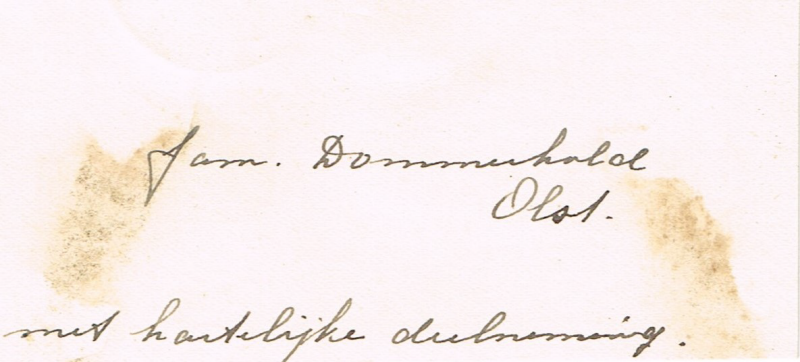 fam. Dommerhold
Olst.
met hartelijke deelneming.